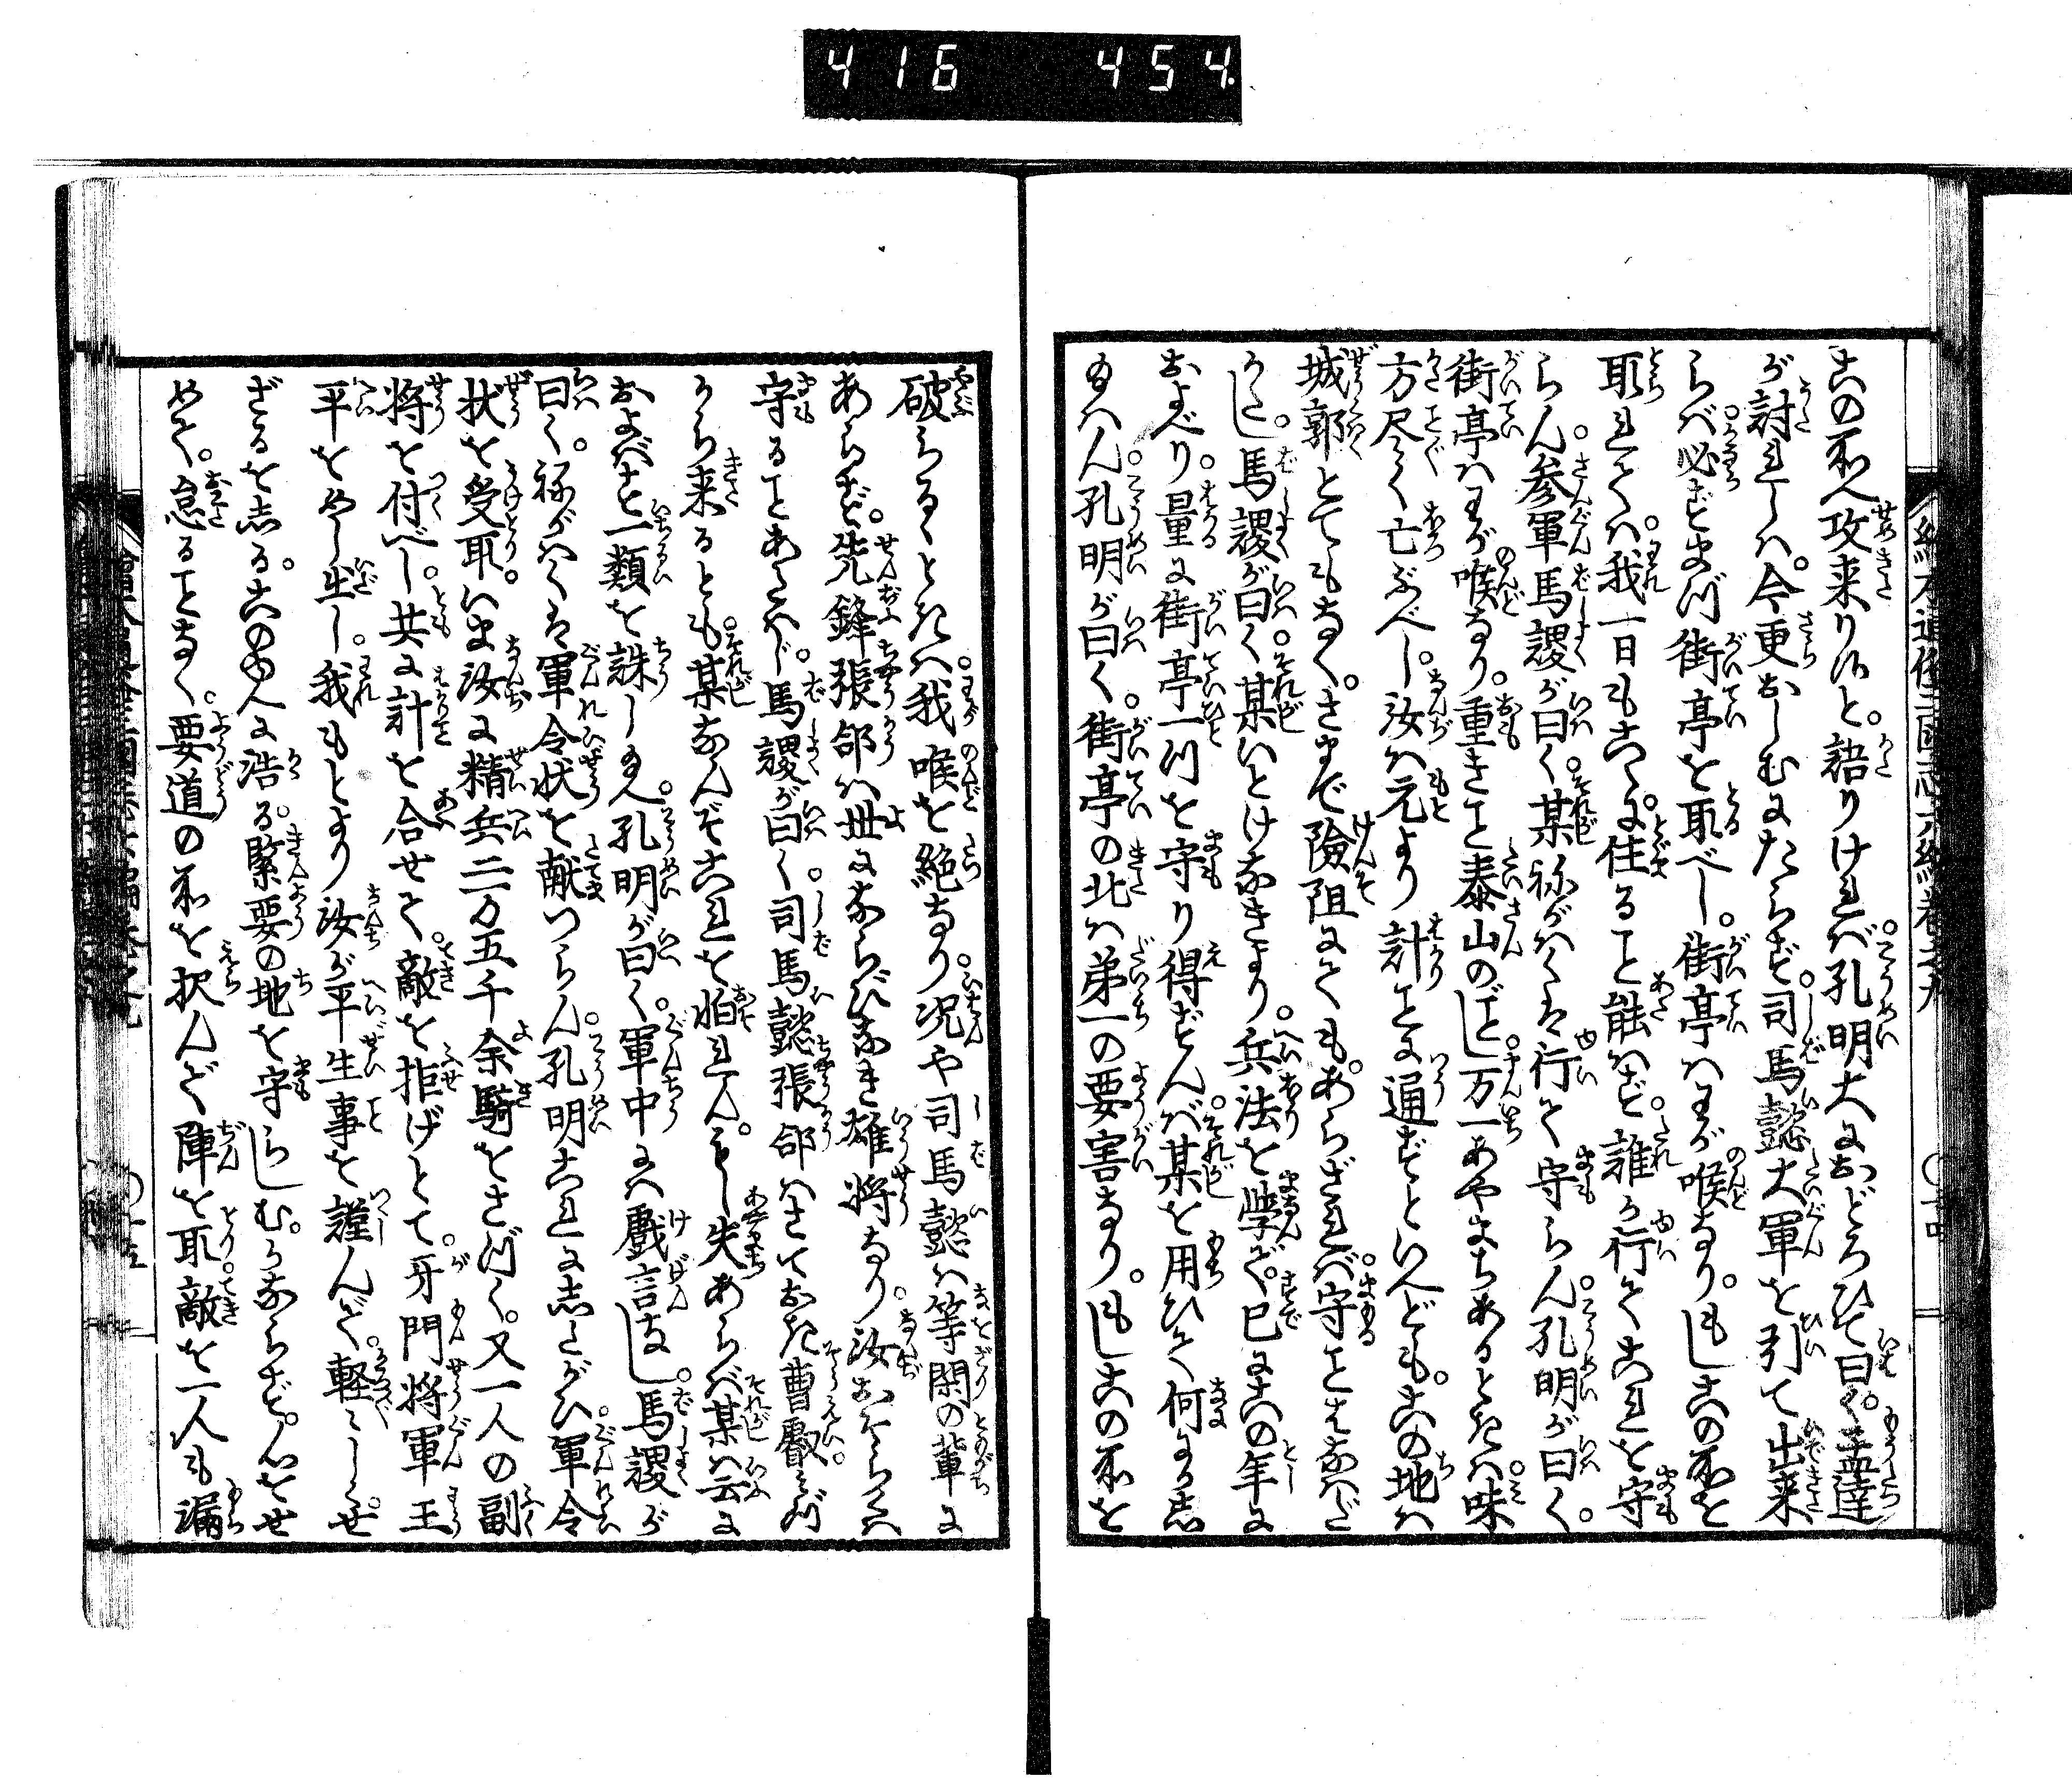 416 454
絵本通俗三國志六編巻之九
この所へ攻来り候と。語りければ孔明大におどろひて曰く。孟達
が討れしは。今更おしむにたらず。司馬懿大軍を引て出来
らば必ずまづ街亭を取べし。街亭はわが喉なり。もしこの所を
取れては。我一日もこゝに住ること能はず。誰か行てこれを守
らん。参軍馬謖が曰く某ねがはくは行て守らん。孔明が曰く。
街亭はわが喉なり。重きこと泰山のごとし。万一あやまちあるときは味
方尽く亡ぶべし。汝は元より計ことに通ずといへども。この地は
城郭とてもなく。さまで険阻にても。あらざれば。守ことはなはだ
かたし。馬謖が曰く。某いとけなきより。兵法を学び。已にこの年に
およべり。量に街亭一つを守り得ずんば。某を用ひて何にかし
給はん。孔明が曰く。街亭の北は第一の要害なり。もしこの所を
破らるゝときは。我喉を絶なり。况や司馬懿は等閑の輩に
あらず。先鋒張郃は世にならびなき雄将なり。汝おそらくは
守ることあたはじ。馬謖が曰く。司馬懿張郃はさておき曹叡みづ
から来るとも。某なんぞこれを怕れん。もし失あらば某は云に
およばず一類を誅し給へ。孔明が曰く。軍中には戯言なし。馬謖が
曰く。ねがはくは軍令状を献つらん。孔明これにしたがひ。軍令
状を受取。いま汝に精兵二万五千余騎をさづく。又一人の副
将を付べし。共に計を合せて。敵を拒げとて。牙門将軍王
平をめし出し。我もとより汝が平生事を謹んで。軽〻しくせ
ざるをしる。このゆへに浩る。緊要の地を守らしむ。かならず。心をせ
めて。怠ることなく。要道の所を択んで陣を取。敵を一人も漏